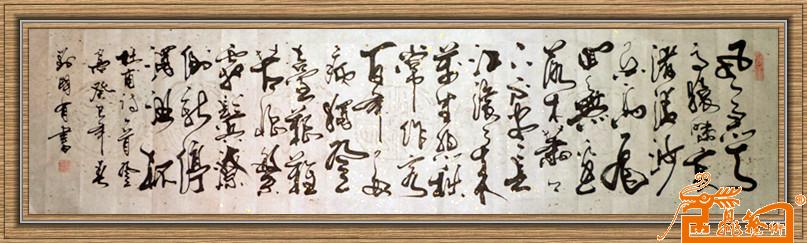 風急天
高猿嘯哀
渚清沙
白鳥飛
迴無邊
落木蕭蕭
下不盡長
江滚滚来
萬里悲秋
常作客
百年多
病獨登
臺艱難
苦恨繁
霜鬢潦
倒新停
濁酒杯
杜甫诗首登
高癸巳年春
明有書